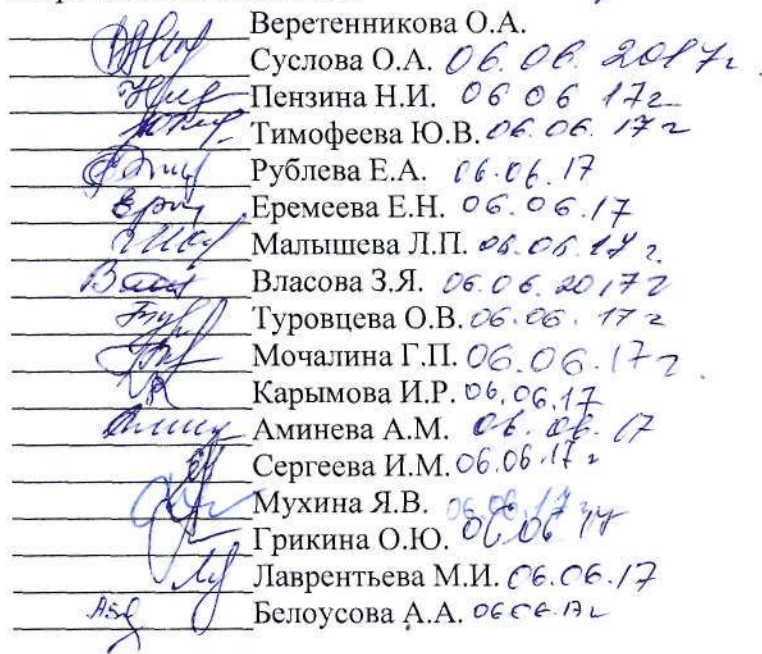 Веретенникова О.А.
Суслова О.А. 06.06.2017г.
Пензина Н.И. 06 06 17г
Тимофеева Ю.В. 06.06.17г
Рублева Е.А. 06.06.17
Еремеева Е.Н. 06.06.17
Малышева Л.П. 06.06.17г.
Власова З.Я. 06.06.2017г
Туровцева О.В. 06.06.17г
Мочалина Г.П. 06.06.17г.
Карымова И.Р. 06.06.17
Аминева А.М. 06.06.17
Сергеева И.М. 06.06.17г
Мухина Я.В. 06.06.17г
Грикина О.Ю. 06.06 17
Лаврентьева М.И. 06.06.17
Белоусова А.А. 06.06.17г